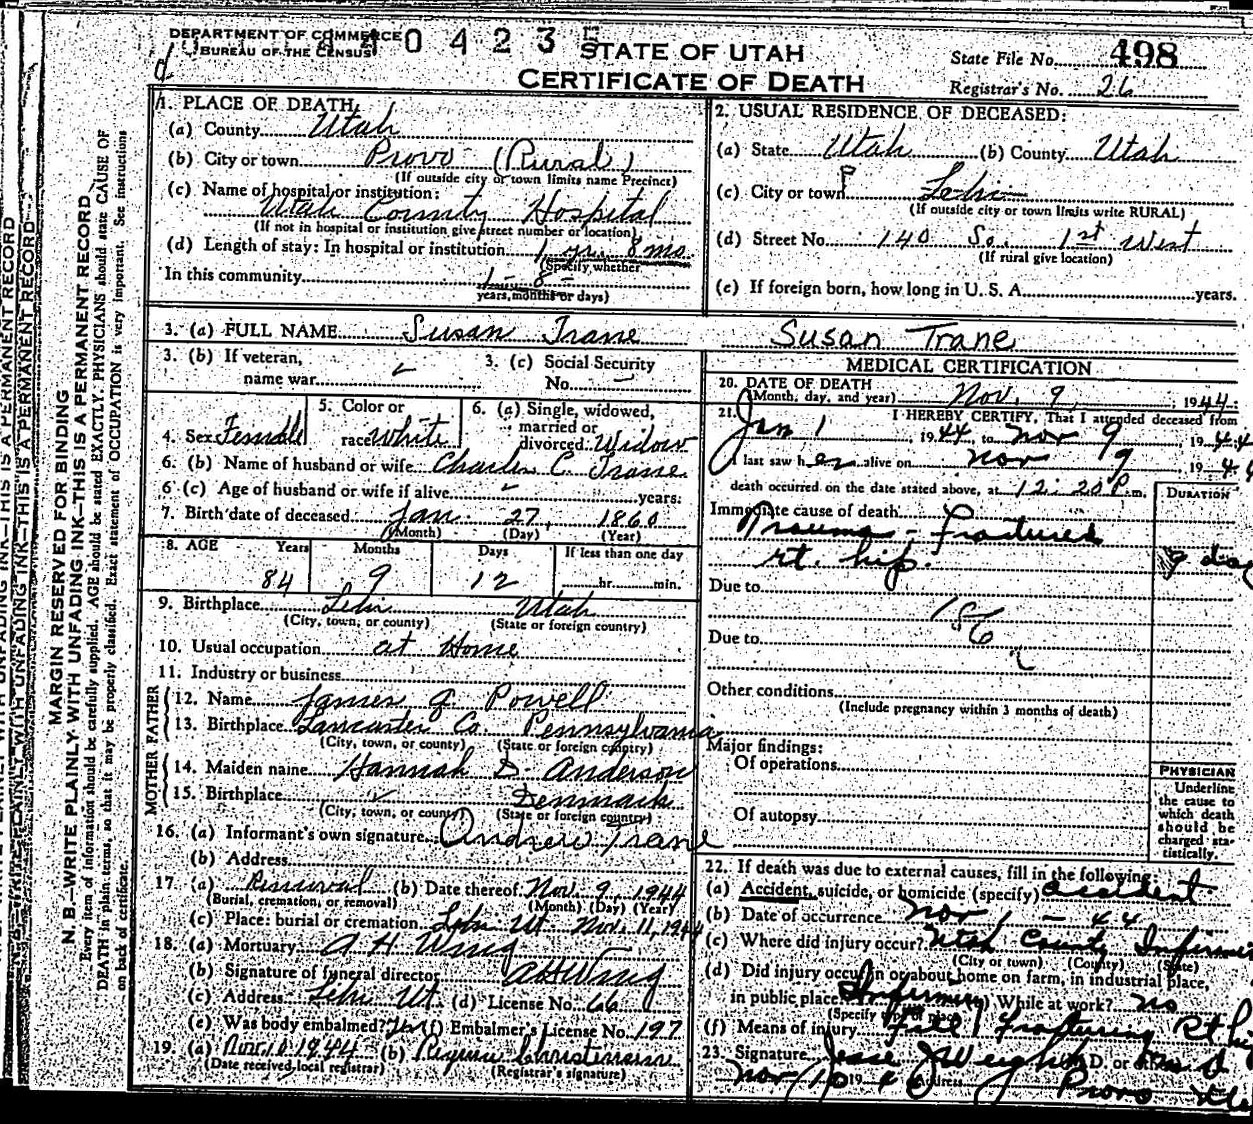 DEPARTMENT OF COMMERCE
BUREAU OF THE CENSUS
0 4 2 3
STATE OF UTAH
CERTIFICATE OF DEATH
State File No. 498
Registrar's No. 26
1. PLACE OF DEATH
(a) County Utah
(b) City or town Provo (Rural)
(If outside city or town limits name Precinct)
(c) Name of hospital or institution:
Utah County Hospital
(If not in hospital or institution give street number or location)
(d) Length of stay: In hospital or institution 1 yr. 8 mo.
(Specify whether
In this community 1 - 8 -
years, months or days)
2. USUAL RESIDENCE OF DECEASED:
(a) State Utah (b) County Utah
(c) City or town Lehi
(If outside city or town limits write RURAL)
(d) Street No. 140 So. 1st West
(If rural give location)
(e) If foreign born, how long in U. S. A. years.
3. (a) FULL NAME Susan Trane Susan Trane
3. (b) If veteran,
name war
3. (c) Social Security
No. —
4. Sex Female
5. Color or
race white
6. (a) Single, widowed,
married or
divorced Widow
6. (b) Name of husband or wife Charles C. Trane
6 (c) Age of husband or wife if alive - years.
7. Birth date of deceased Jan. 27, 1860
(Month) (Day) (Year)
8. AGE Years Months Days If less than one day
84 9 12 hr. min.
9. Birthplace Lehi Utah
(City, town, or county) (State or foreign country)
10. Usual occupation at Home
11. Industry or business
FATHER
12. Name James J. Powell
13. Birthplace Lancaster Co. Pennsylvania
(City, town, or county) (State or foreign country)
MOTHER
14. Maiden name Hannah D. Anderson
15. Birthplace Denmark
(City, town, or county) (State or foreign country)
16. (a) Informant's own signature Andrew Trane
(b) Address
17 (a) Removal (b) Date thereof Nov. 9 1944
(Burial, cremation, or removal) (Month) (Day) (Year)
(c) Place: burial or cremation Lehi Ut. Nov. 11, 1944
18. (a) Mortuary A H Wing
(b) Signature of funeral director AH Wing
(c) Address Lehi Ut. (d) License No. 66
(e) Was body embalmed? Yes (f) Embalmer's License No. 197
19. (a) Nov. 10 1944 (b) Christensen
(Date received local registrar) (Registrar's signature)
MEDICAL CERTIFICATION
20. DATE OF DEATH
(Month, day, and year) Nov. 9, 1944
21. I HEREBY CERTIFY, That I attended deceased from
Jan 1, 1944, to Nov 9 1944
I last saw her alive on Nov 9 19
death occurred on the date stated above, at 12:20 P.m.
DURATION
Immediate cause of death
Trauma - Fractured
rt. hip.
9 day
Due to
186
Due to
Other conditions
(Include pregnancy within 3 months of death)
Major findings:
Of operations
Of autopsy
PHYSICIAN
Underline
the cause to
which death
should be
charged sta-
tistically.
22. If death was due to external causes, fill in the following:
(a) Accident, suicide, or homicide (specify) accident
(b) Date of occurrence Nov 1 - 44
(c) Where did injury occur? Utah County Infirmary
(City or town) (County) (State)
(d) Did injury occur in or about home on farm, in industrial place,
in public place Infirmary While at work? no
(Specify type of place)
(f) Means of injury Fall Fracturing Rt hip
23. Signature Jesse J Weight M. D. or other
Nov 19 Address Provo
MARGIN RESERVED FOR BINDING
N. B.—WRITE PLAINLY WITH UNFADING INK—THIS IS A PERMANENT RECORD
Every item of information should be carefully supplied. AGE should be stated EXACTLY. PHYSICIANS should state CAUSE OF
DEATH in plain terms, so that it may be properly classified. Exact statement of OCCUPATION is very important. See instructions
on back of certificate.